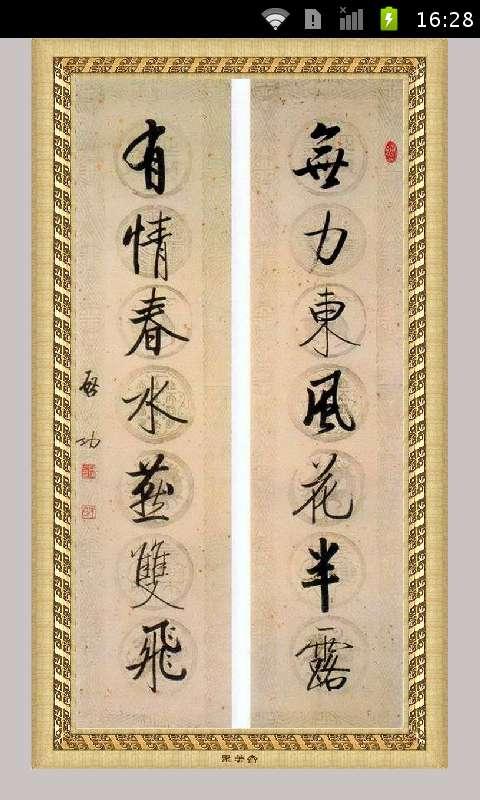 16:28
無力東風花半露
有情春水燕雙飛
啟功